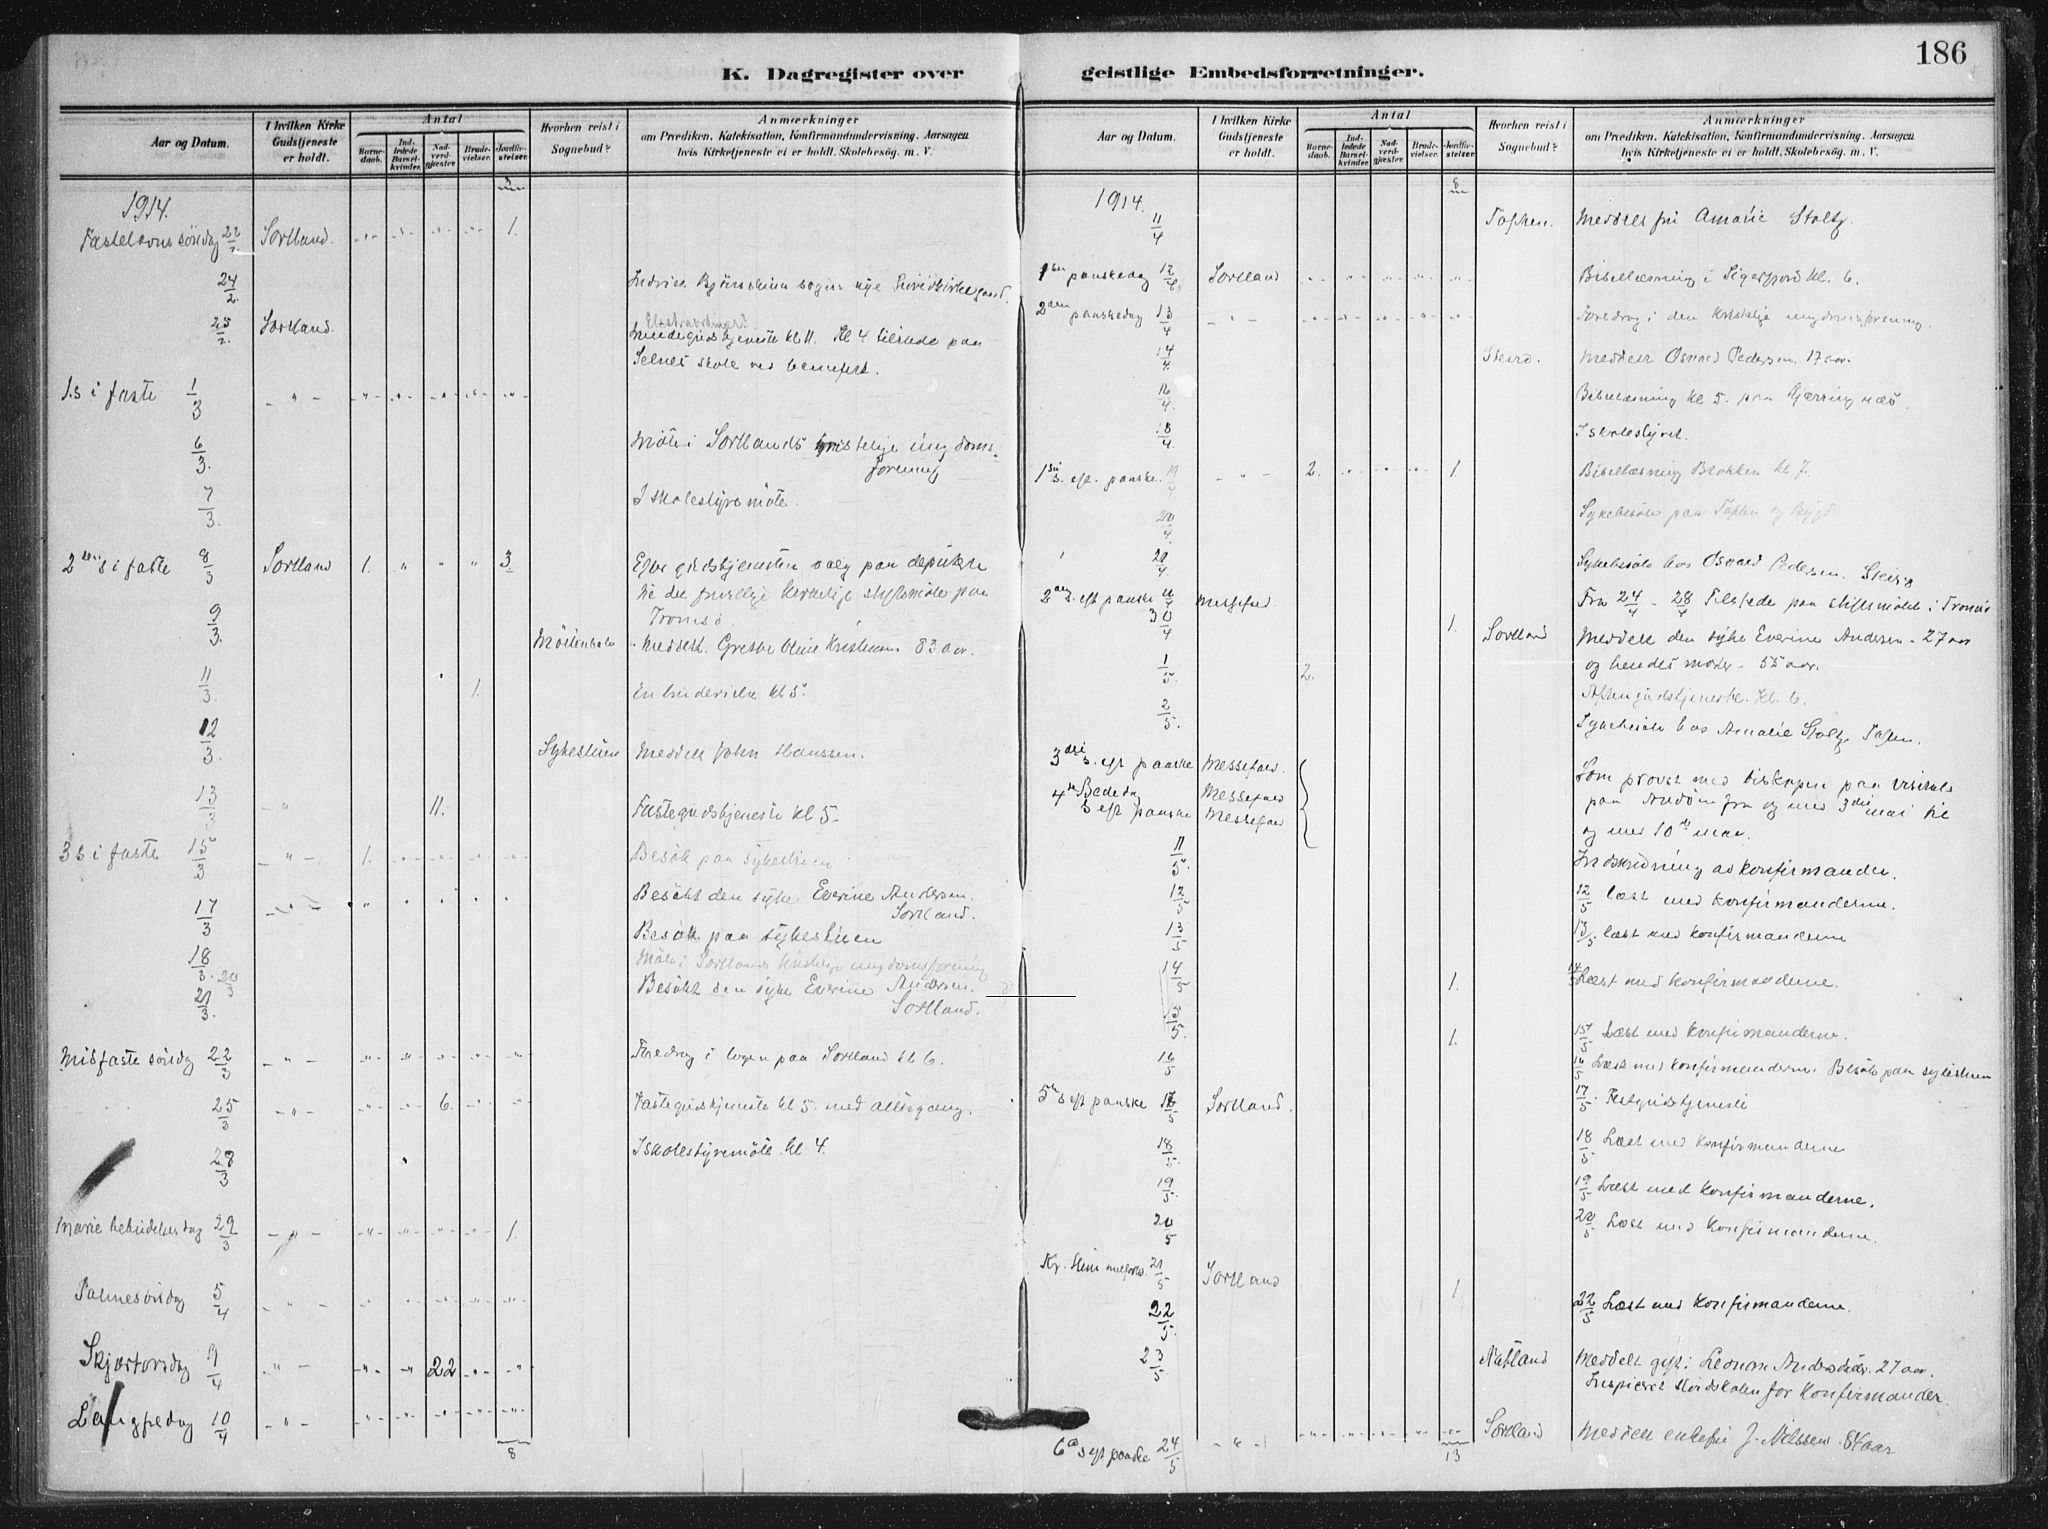 186
K. Dagregister over geistlige Embedsforretninger.
Aar og Datum.
I hvilken Kirke Gudstjeneste er holdt.
Antal
Barnedaab.
Indledede Barselkvinder.
Nadverdgjæster.
Brudevielser.
Jordfæstelser.
Hvorhen reist i Sognebud?
Anmærkninger
om Prædiken, Katekisation, Konfirmandundervisning, Aarsagen hvis Kirketjeneste ei er holdt, Skolebesøg. m. V.
1914.
Fastelavns søndag 22/2 Sortland. 1.
24/2 Indviet sogns nye
25/2 Sortland.
Ekstraordinær
kl 11. Kl 4 tilstede paa
Selnes skole ved
1.s i faste 1/3
6/3 Møte i Sortlands kristelige ungdoms-
forening
7/3 I skolestyremøte.
2den s i faste 8/3 Sortland 1. " " " 3.
Efter gudstjenesten valg paa
til det frivillige kirkelige stiftsmøte paa
Tromsø
9/3 Meddelt Oline 83 aar.
11/3 1. En kl 5.
12/3 Sykestuen Meddelt John Hanssen.
13/3 11. Fastegudstjeneste kl 5.
3 s i faste 15/3 1. Besøk paa sykestuen
17/3 Besøkt den syke Everine Andersen.
Sortland.
18/3 Besøk paa sykestuen
20/3 Møte i Sortlands kristelige ungdomsforening
21/3 Besøkt den syke Everine Andersen.
Sortland.
Midfaste søndag 22/3 Foredrag i logen paa Sortland kl 6.
25/3 6. Fastegudstjeneste kl 5. med altergang.
28/3 I skolestyremøte kl 4.
Marie bebudelses dag 29/3 1.
Palmesøndag 5/4
Skjærtorsdag 9/4 22
Langfredag 10/4
8
K. Dagregister over geistlige Embedsforretninger.
Aar og Datum.
I hvilken Kirke Gudstjeneste er holdt.
Antal
Barnedaab.
Indledede Barselkvinder.
Nadverdgjæster.
Brudevielser.
Jordfæstelser.
Hvorhen reist i Sognebud?
Anmærkninger
om Prædiken, Katekisation, Konfirmandundervisning, Aarsagen hvis Kirketjeneste ei er holdt, Skolebesøg. m. V.
8
1914.
11/4 Meddelt fru Amalie Stoltz.
1ste paaskedag 12/4 Sortland Bibellæsning i Sigerfjord kl. 6.
2den paaskedag 13/4 Foredrag i den kristelige ungdomsforening.
14/4 Meddelt Osvald Pedersen. 17 aar.
16/4 Bibellæsning kl 5. paa Kjerringnæs.
18/4 I skolestyret.
1ste s. eft. paaske. 19/4 2. 1. Bibellæsning Blokken kl 7.
20/4 Sykebesøk paa
Sykebesøk hos Osvald Pedersen.
2den s. eft paaske Messefald
Fra 24/4 - 28/4 Tilstede paa stiftsmøtet i Tromsø
30/4 1. Sortland Meddelt den syke Everine Andersen - 27 aar
og hendes moder - 55 aar.
1/5 2. Aftengudstjeneste. kl. 6.
2/5 Sykebesøk hos Amalie Stoltz
3die s. eft paaske Messefald.
4de Bededag Messefald
s eft paaske Messefald
Som provst med biskopen paa visitats
paa Andøen fra og med 3die mai til
og med 10de mai.
11/5 Indskrivning av konfirmander.
12/5 12/5 læst med konfirmanderne.
13/5 13/5 læst med konfirmanderne
14/5 1. 14/5 Læst med konfirmanderne.
15/5 1. 15/5 Læst med konfirmanderne.
16/5 16/5 Læst med konfirmanderne. Besøk paa sykestuen
5te s eft paaske 17/5 Sortland. 17/5 Festgudstjeneste
18/5 18/5 Læst med konfirmanderne
19/5 19/5 Læst med konfirmanderne.
20/5 20/5 Læst med konfirmanderne.
Kr. Himmelfartsd. 21/5 Sortland 1.
22/5 22/5 Læst med konfirmanderne.
23/5 Meddelt 27 aar.
Inspiceret for konfirmander.
6te s eft paaske 24/5 Sortland Meddelt enkefru J. Nilssen. 84 aar
13